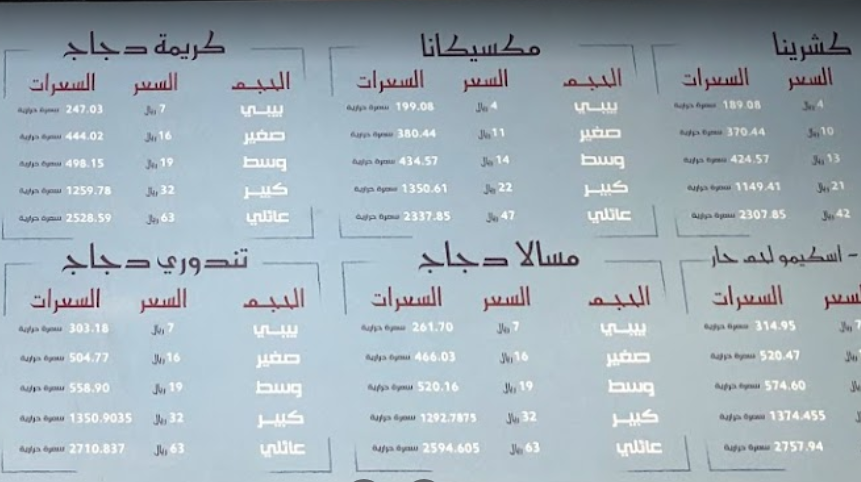 كشرينا
السعر السعرات
4 ريال 189.08 سعرة حرارية
10 ريال 370.44 سعرة حرارية
13 ريال 424.57 سعرة حرارية
21 ريال 1149.41 سعرة حرارية
42 ريال 2307.85 سعرة حرارية
مكسيكانا
الحجم السعر السعرات
بيبي 4 ريال 199.08 سعرة حرارية
صغير 11 ريال 380.44 سعرة حرارية
وسط 14 ريال 434.57 سعرة حرارية
كبير 22 ريال 1350.61 سعرة حرارية
عائلي 47 ريال 2337.85 سعرة حرارية
كريمة دجاج
الحجم السعر السعرات
بيبي 7 ريال 247.03 سعرة حرارية
صغير 16 ريال 444.02 سعرة حرارية
وسط 19 ريال 498.15 سعرة حرارية
كبير 32 ريال 1259.78 سعرة حرارية
عائلي 63 ريال 2528.59 سعرة حرارية
- اسكيمو لحم حار
السعر السعرات
314.95 سعرة حرارية
520.47 سعرة حرارية
574.60 سعرة حرارية
1374.455 سعرة حرارية
2757.94 سعرة حرارية
مسالا دجاج
الحجم السعر السعرات
بيبي 7 ريال 261.70 سعرة حرارية
صغير 16 ريال 466.03 سعرة حرارية
وسط 19 ريال 520.16 سعرة حرارية
كبير 32 ريال 1292.7875 سعرة حرارية
عائلي 63 ريال 2594.605 سعرة حرارية
تندوري دجاج
الحجم السعر السعرات
بيبي 7 ريال 303.18 سعرة حرارية
صغير 16 ريال 504.77 سعرة حرارية
وسط 19 ريال 558.90 سعرة حرارية
كبير 32 ريال 1350.9035 سعرة حرارية
عائلي 63 ريال 2710.837 سعرة حرارية